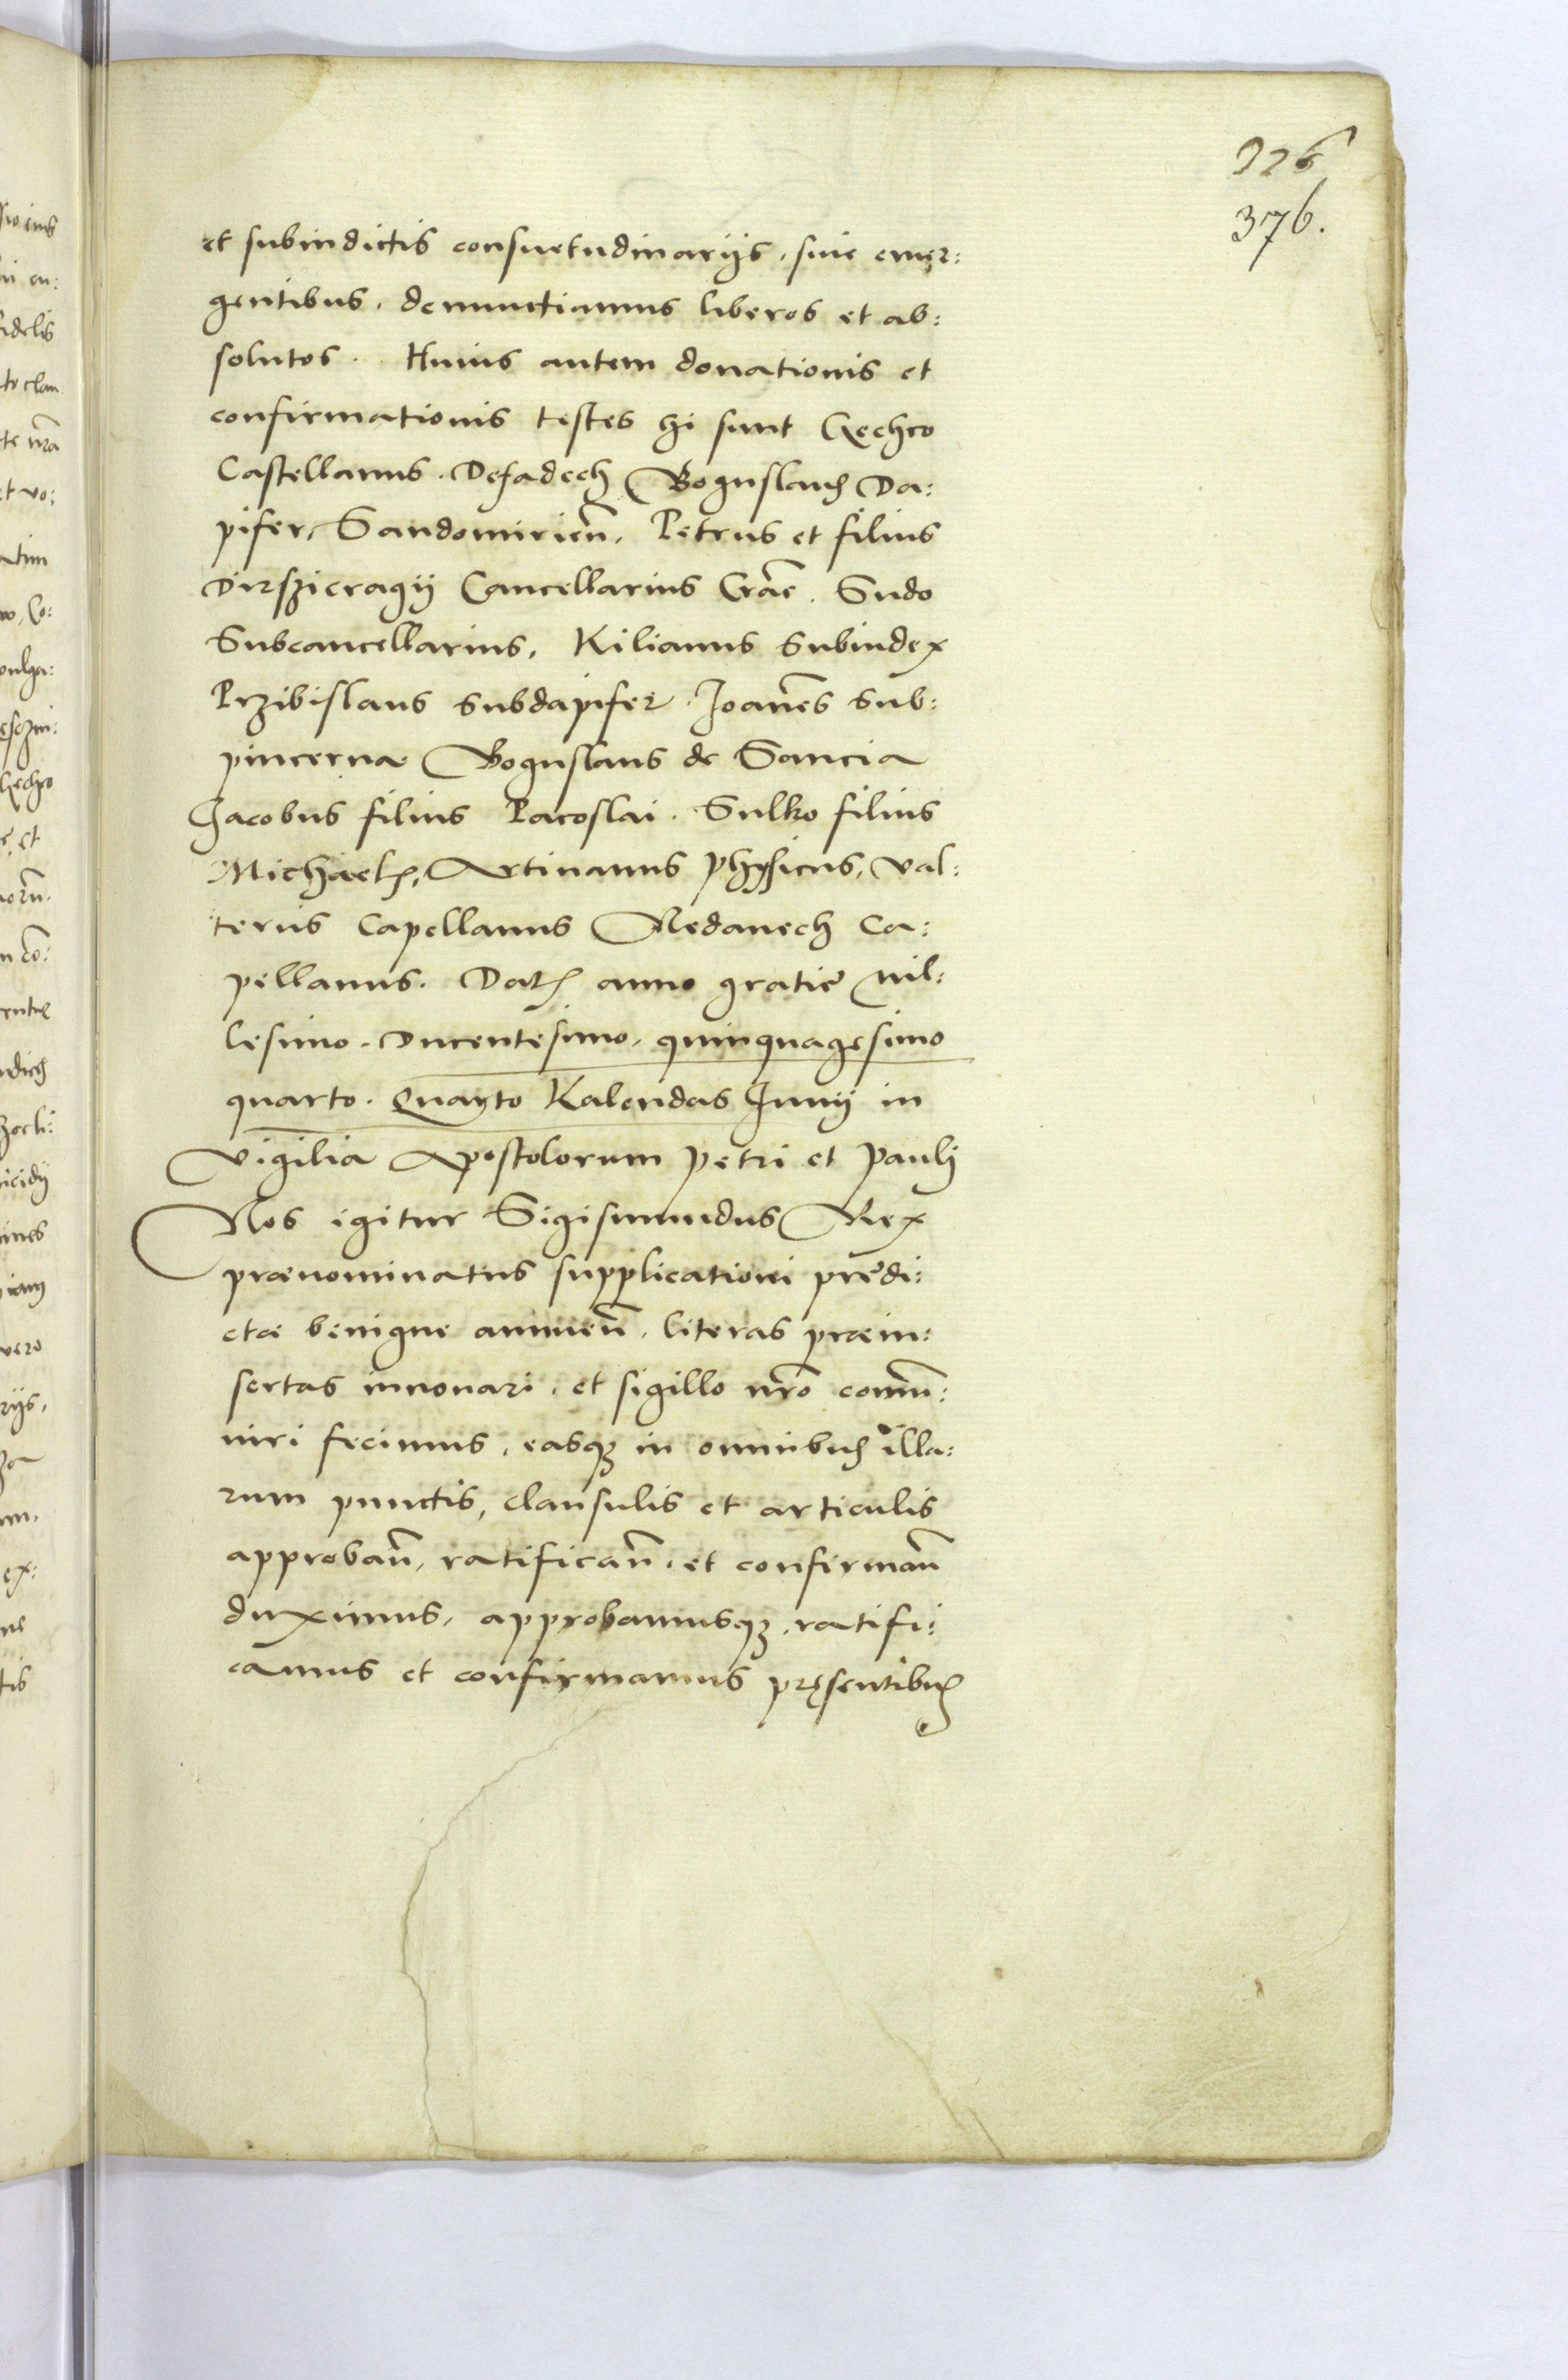 326
376.
et subindictis consuetudinarijs, siue emer:
gentibus, denunctiamus liberos et ab:
solutos. Huius autem donationis et
confirmationis testes hi sunt Gechco
Castellanus. Defadech Boguslaus Da:
pifer, Sandomirien̄, Petrus et filius
Dirszicragij Cancellarius Crāē. Sudo
Subcancellarius, Kilianus Subiudex
Przibislaus Subdapifer. Joanēs Sub:
pincerna Boguslaus de Sancia
Jacobus filius Pacoslai. Sulko filius
Michaelis, Artinanus physicus, Val:
terus Capellanus Nedanech Ca:
pellanus. Dat anno gratie mil:
lesimo. Ducentesimo, quinquagesimo
quarto. Quarto Kalendas Junij in
Vigilia Apostolorum Petri et Pauli
Nos igitur Sigismundus Rex
prænominatus supplicationi prędi:
ctæ benigne annuen̄, literas præin:
sertas innouari, et sigillo nr̄o commu:
niri fecimus, easq; in omnibus illa:
rum punctis, clausulis et articulis
approban̄, ratifican̄, et confirman̄
duximus, approbamusq;, ratifi:
camus et confirmamus pręsentibus